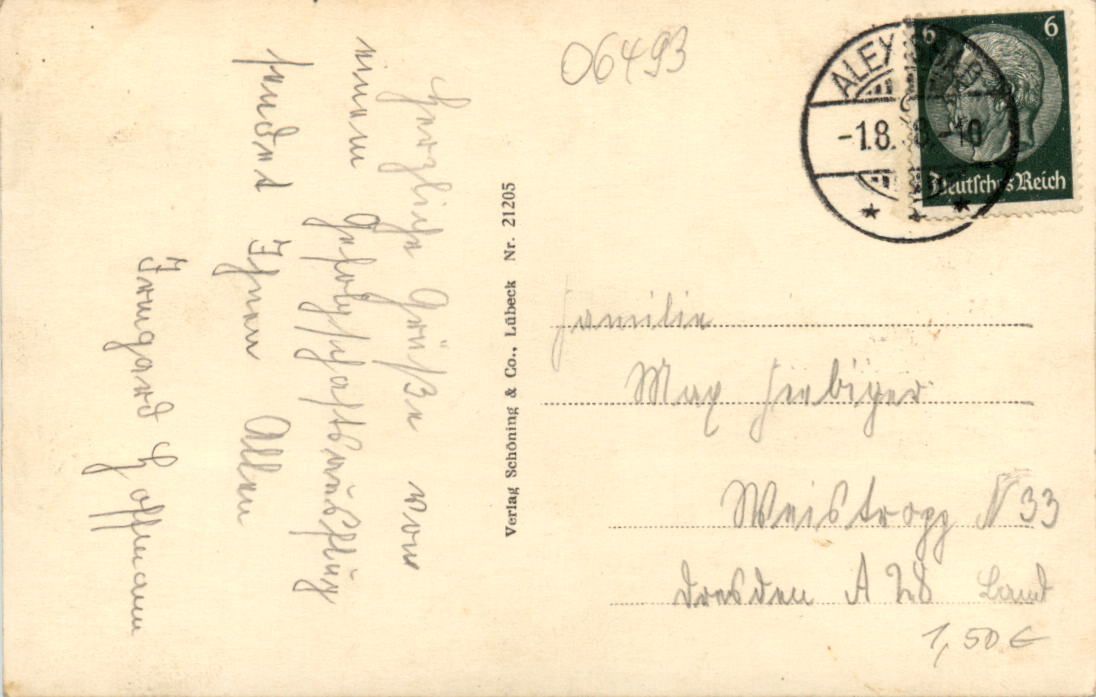 06493
6
6
Deutsches Reich
-1.8. 8-10
Herzliche Grüße von
einem Gefolgschaftsausflug
sendet Ihnen Allen
Irmgard Hoffmann
Verlag Schöning & Co., Lübeck Nr. 21205
Familie
Max
Weistropp N 33
Dresden A 28 Land
1,50 €